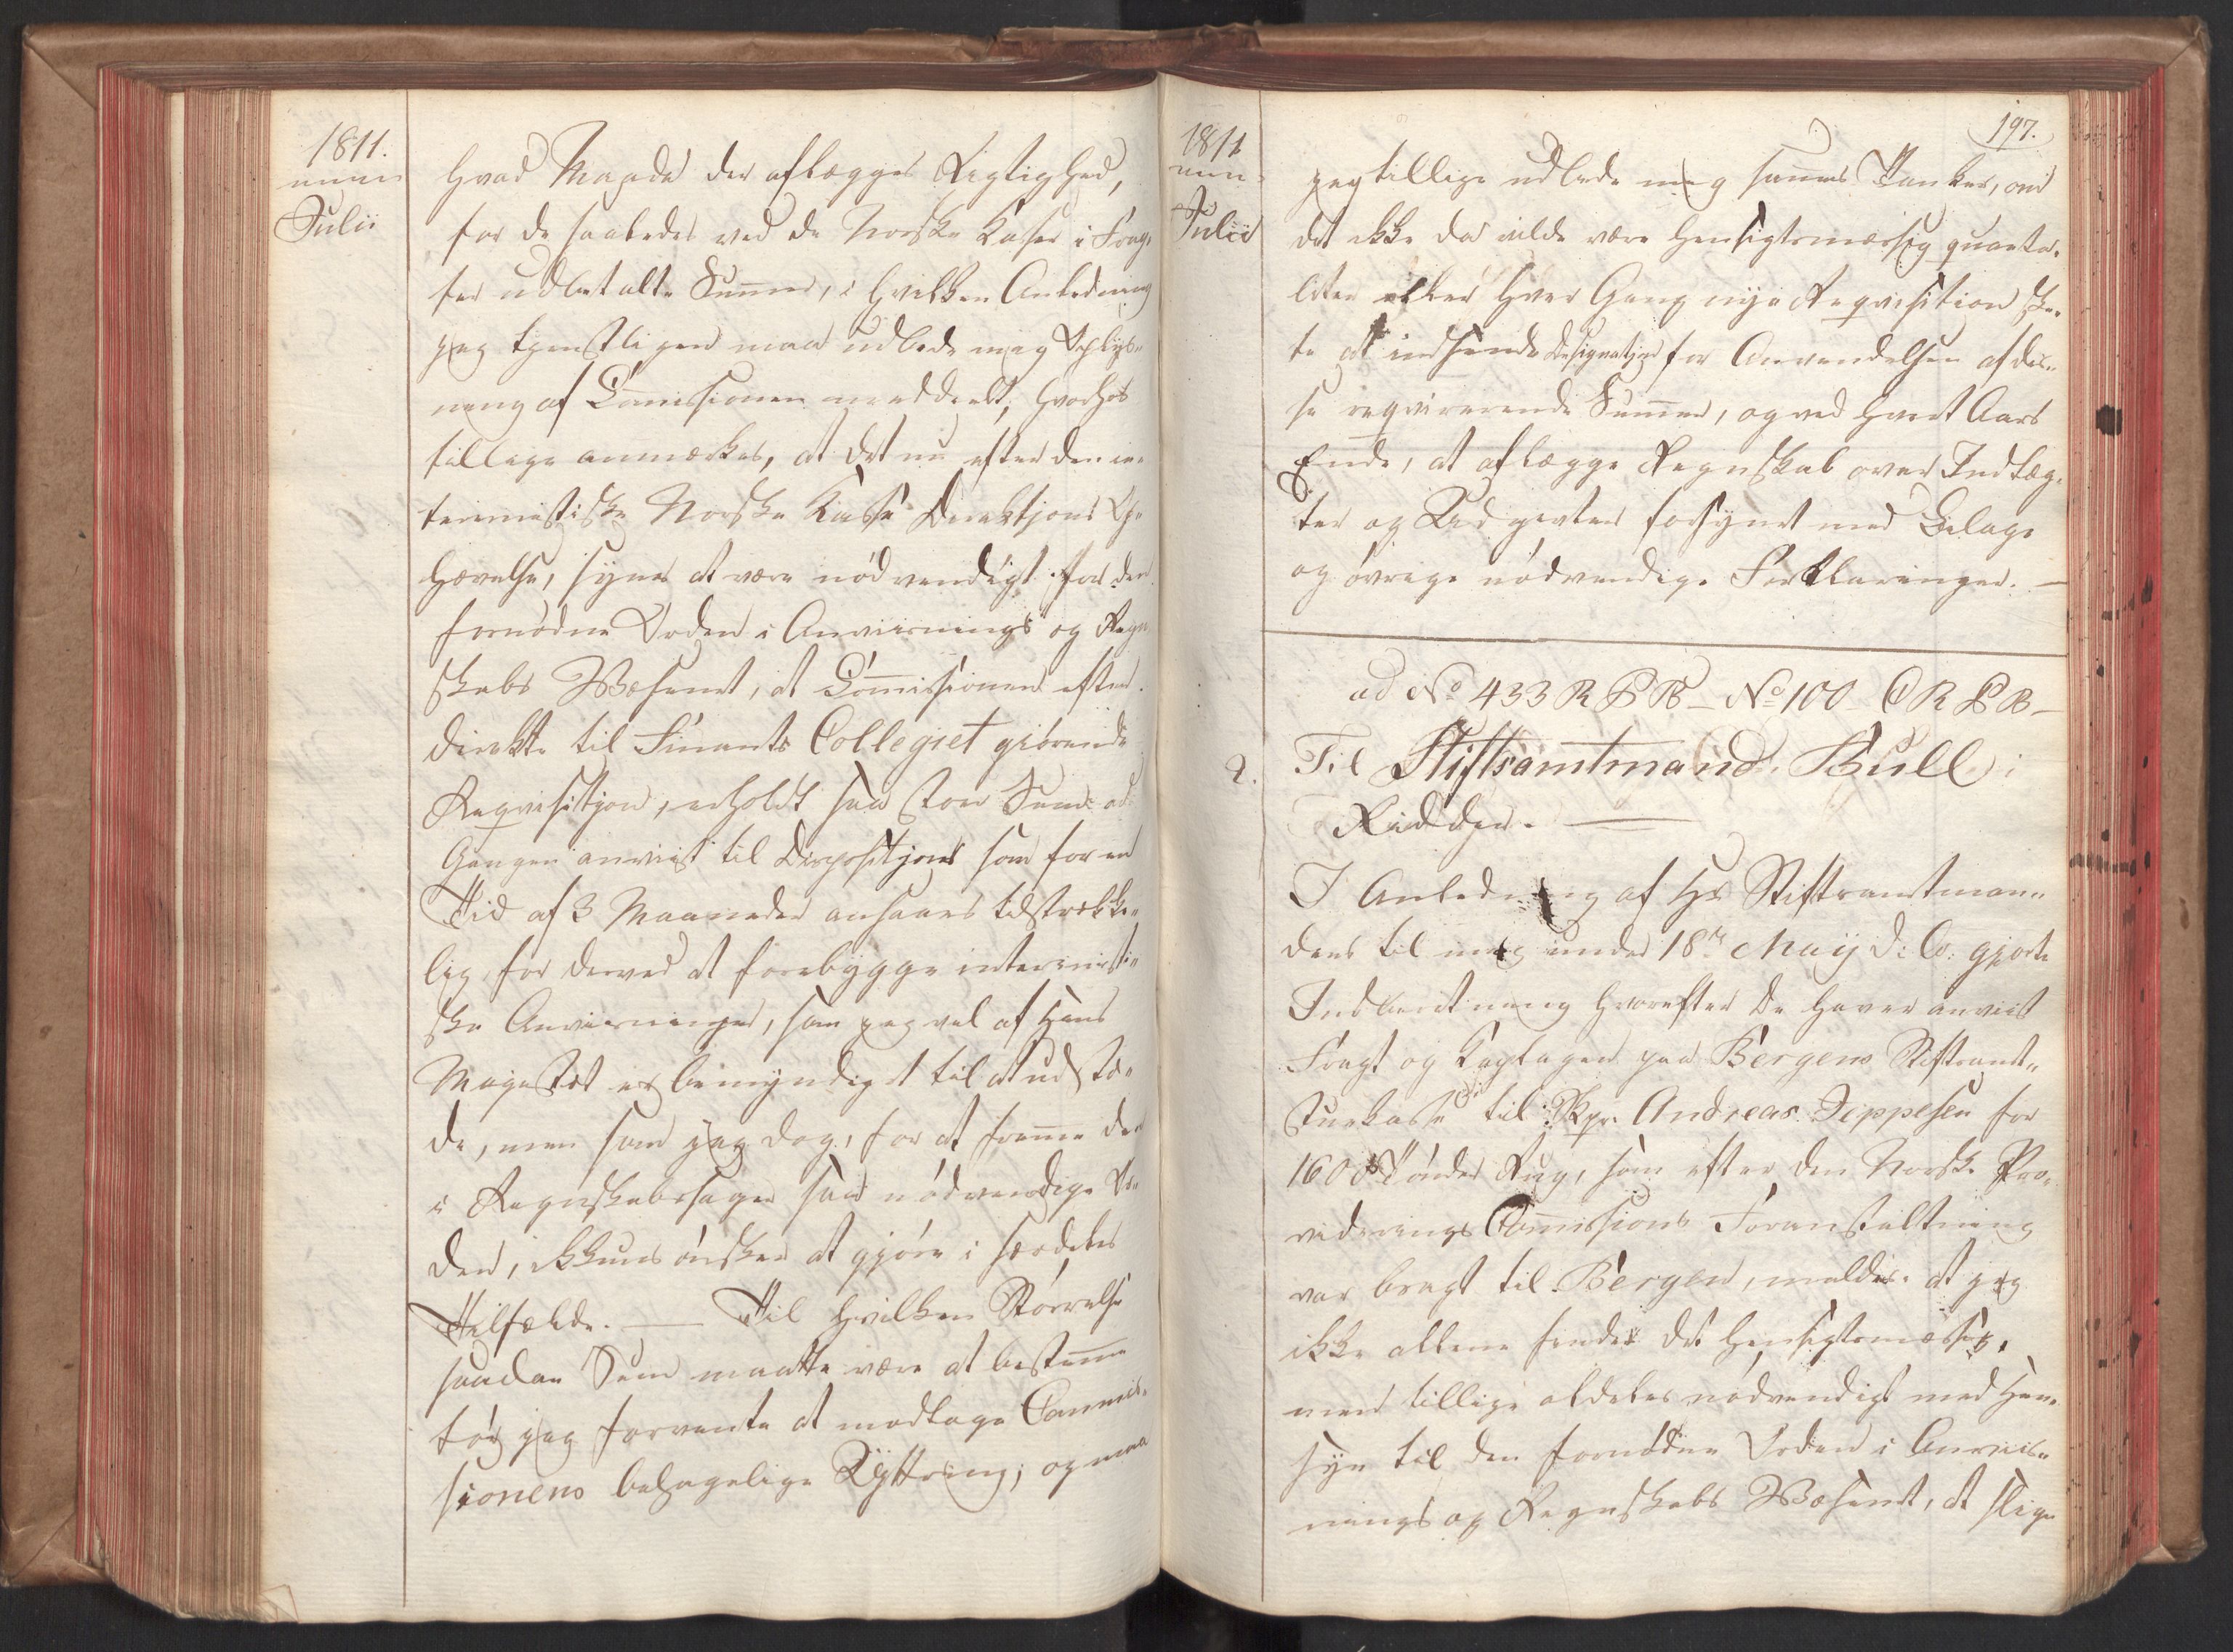 1811.
Julii
hvad Maade der aflægges Rigtighed,
for de saaledes ved de Norske Casser i Frag-
ter udbetalte Summer, i hvilken Anledning
jeg tjenstligen maa udbede mig Oplys-
ning af Commissionen meddeelt, hvorhos
tillige anmærkes, at det nu efter den in-
terimistiske Norske Casse Direktions Op-
hævelse, synes at være nödvendigt for den
fornödne Orden i Anviisnings og Regn-
skabs Wæsenet, at Commissionen efter
direkte til Finants Collegiet giörende
Reqvisitjon, erholdt saa stor Sum ad
Gangen anviist til Dispositjon som for en
Tid af 3 Maaneder ansaaes tilstrække-
lig, for derved at forebygge interimisti-
ske Anviisninger, som jeg vel af Hans
Majestet er bemyndiget til at udstæ-
de, men som jeg dog, for at fremme den
i Regnskabssager saa nödvendige Or-
den, ikkuns önsker at gjöre i særdeles
Tilfælde. — Til hvilken Störrelse
saadan Sum maatte være at bestemme
tör jeg forvente at modtage Commis-
sionens behagelige Yttring; og maa
1811
Julii
197.
jeg tillige udbede mig sammes Tanker, om
det ikke da vilde være hensigtsmæssig qvarta-
liter eller hver Gang nye Reqvisition ske-
te at indsende Designatjon for Anvendelsen af des-
se reqvirerende Summer, og ved hvert Aars
Ende, at aflægge Regnskab over Indtæg-
ter og Udgivter forsynet med Bilage
og övrige nödvendige Forklaringer. —
ad No 433 R P B – No 100 C R P B –
2. Til Stiftsamtmand Bull i
Ridder. —
I Anledning af Hr Stiftsamtman-
dens til mig under 18de Maij d: A: gjorte
Indberetning hvorefter De haver anviist
Fragt og Kaplagen paa Bergens Stiftsamt-
stuekasse til Skpr. Andreas Jeppesen for
1600 Tönder Rug, som efter den Norske Pro-
viderings Commissions Foranstaltning
var bragt til Bergen, meldes at jeg
ikke allene finder det hensigtsmæssig,
men tillige aldeles nödvendigt med Hen-
syn til den fornödne Orden i Anviis-
nings og Regnskabs Wæsenet, at slige